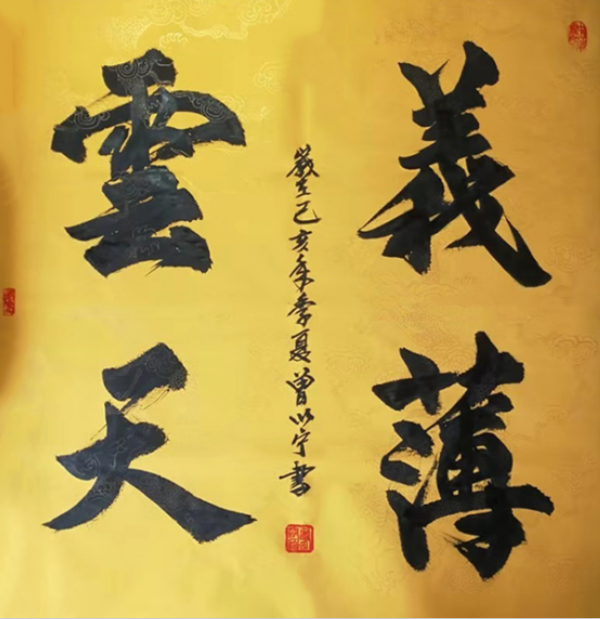 義薄
雲天
歲在己亥年季夏曾以宁書